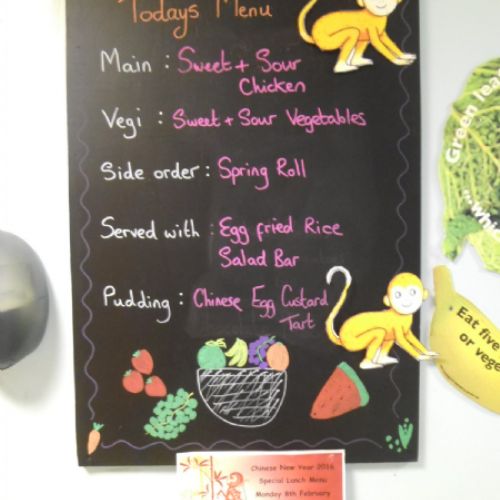 Todays Menu
Main : Sweet + Sour
Chicken
Vegi : Sweet + Sour Vegetables
Side order : Spring Roll
Served with : Egg fried Rice
Salad Bar
Pudding : Chinese Egg Custard
Tart
Green lea
...whi
Eat five
or vege
Chinese New Year 2016
Special Lunch Menu
Monday 8th February